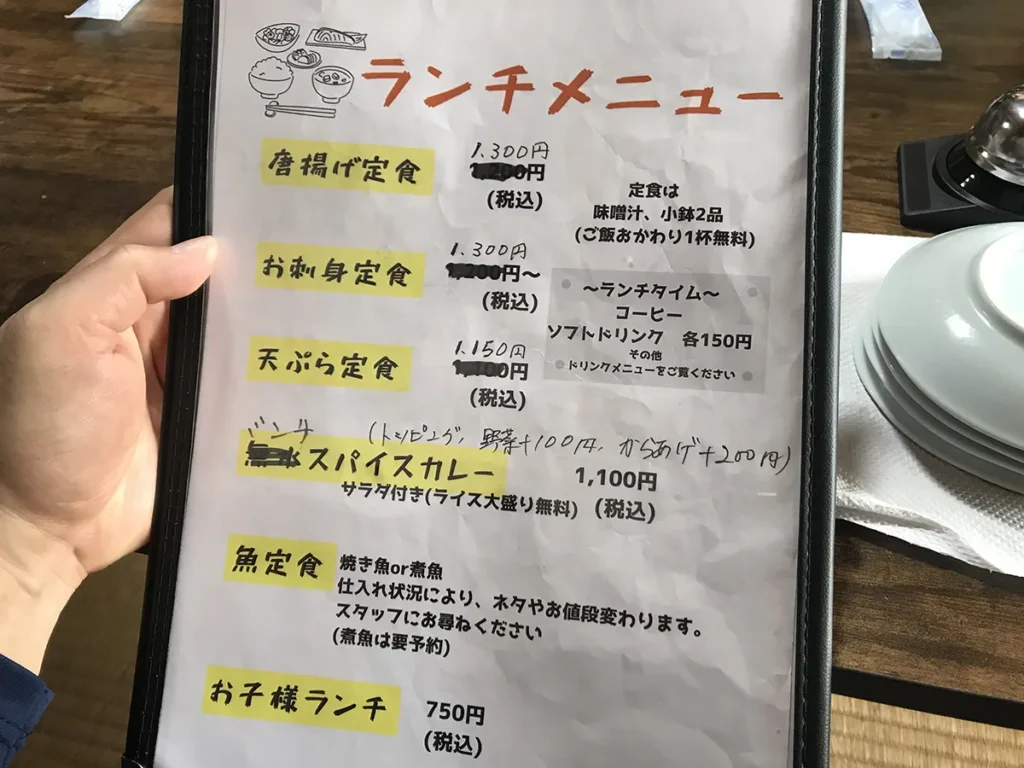 ランチメニュー
唐揚げ定食
1.300円
1,200円
(税込)
定食は
味噌汁、小鉢2品
(ご飯おかわり1杯無料)
お刺身定食
1.300円
円〜
(税込)
〜ランチタイム〜
コーヒー
ソフトドリンク 各150円
その他
ドリンクメニューをご覧ください
天ぷら定食
1.150円
1,100円
(税込)
(トッピング, 野菜+100円, からあげ+200円)
スパイスカレー
1,100円
サラダ付き(ライス大盛り無料)
(税込)
魚定食
焼き魚or煮魚
仕入れ状況により、ネタやお値段変わります。
スタッフにお尋ねください
(煮魚は要予約)
お子様ランチ
750円
(税込)